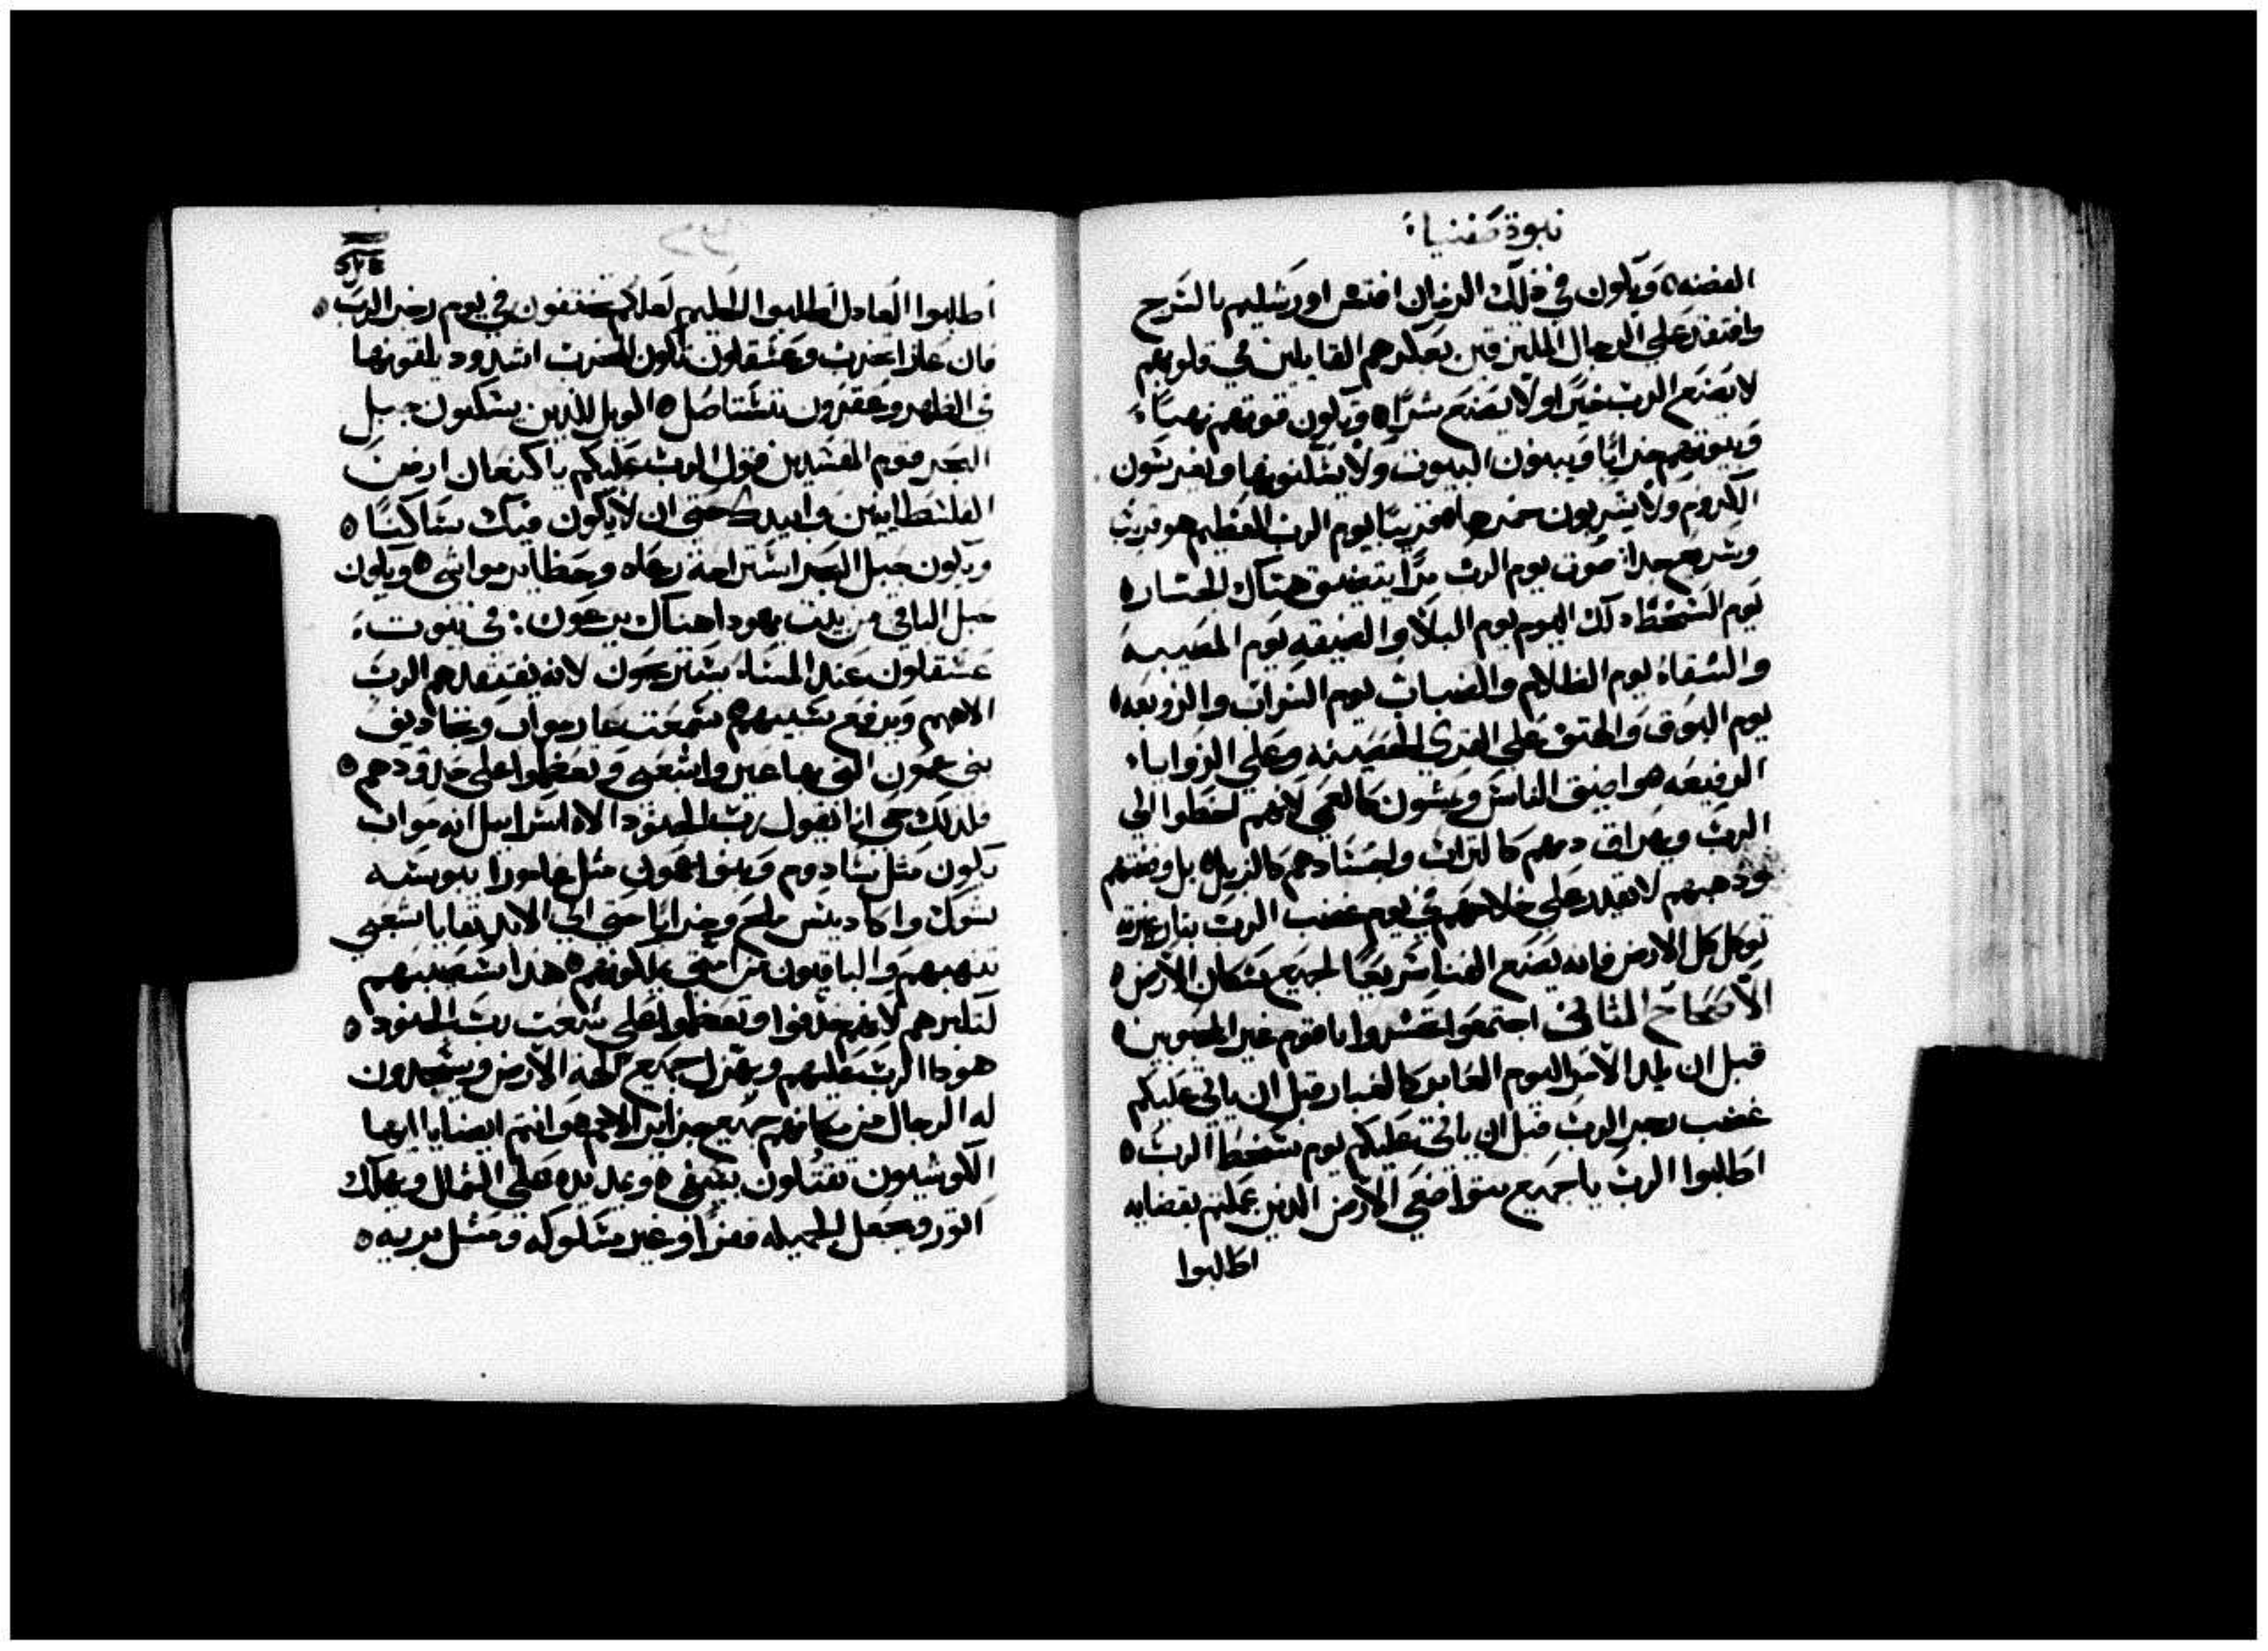 نبوة صفنيا
الفضه ويكون في ذلك الزمان افتش اورشليم بالسرج
وافتقد علي الرجال المليزقين بعكرهم القايلين في قلوبهم
لا يصنع الرب خيرًا ولا يصنع شرًا ويكون قوتهم نهبًا
وبيوتهم خرابًا ويبنون البيوت ولا يسكنونها ويغرسون
الكروم ولا يشربون خمرها قريبًا يوم الرب العظيم هو قريب
وسريع جدًا صوت يوم الرب مرًا يتضيق هناك الجبار
يوم السخط ذلك اليوم يوم البلا والضيقه يوم المصيبه
والشقاء يوم الظلام والضباب يوم السواب والزوبعه
يوم البوق والهتف علي القري الحصينه وعلي الزوايا
الرفيعه هو اضيق الناس ويمشون كالعمي لانهم اخطوا الي
الرب ويهراق دمهم كالتراب واجسادهم كالزبل بل وفضتهم
وذهبهم لا تقدر علي خلاصهم في يوم غضب الرب بنار غيرته
توكل كل الارض فانه يصنع الفنا سريعًا لجميع سكان الارض
الاصحاح الثاني اجتمعوا احتشروا يا قوم غير المحبوبين
قبل ان يلد الامر اليوم العابر كالغبار قبل ان ياتي عليكم
غضب رجز الرب قبل ان ياتي عليكم يوم سخط الرب
اطلبوا الرب يا جميع متواضعي الارض الذين عملتم بقضايه
اطلبوا
اطلبوا العادل اطلبوا الحليم لعلكم تختفون في يوم رجز الرب
فان غازا تخرب وعسقلون تكون للخرب اشدود يلقونها
في الظهر وعقرون تستاصل الويل للذين يسكنون حبل
البحر قوم المفسدين قول الرب عليكم يا كنعان ارض
الفلسطانيين وابيدك حتى ان لا يكون فيك ساكنًا
ويكون حبل البحر استراحة رعاه وحظاير مواشي ويكون
حبل الباقي من بيت يهودا هناك يرعون في بيوت
عسقلون عند المساء يستريحون لانه يفتقدهم الرب
الاههم ويرفع سبيهم سمعت عار مواب وتجاديف
بني عمون التي بها عيروا شعبي وتعظموا علي حدودهم
فلذلك حي انا يقول رب الجنود الاه اسراييل انه مواب
تكون مثل سادوم وبنوا عمون مثل عامورا يبوسه
شوك واكاديس ملح وخرابًا حتى الي الابد بقايا شعبي
تنهبهم والباقيون من امتي يملكونهم هذا سيصيبهم
لتكبرهم لانهم جدفوا وتعظموا علي شعب رب الجنود
هودا الرب عليهم ويهزل جميع الهة الارض ويسجدون
له الرجال من مكانهم جميع جزاير الامم وانتم ايضا يا ايها
الكوشيون تقتلون بسيفي ويمد يده علي الشمال ويهلك
اتور ويجعل الجميله قفرًا وغير مسلوكه ومثل بريه